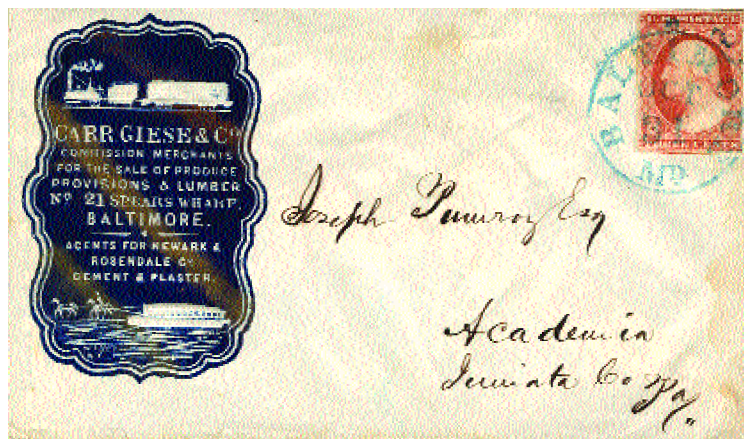 CARR GIESE & Co
COMMISSION MERCHANTS
FOR THE SALE OF PRODUCE
PROVISIONS & LUMBER
No 21 SPEARS WHARF,
BALTIMORE.
AGENTS FOR NEWARK &
ROSENDALE Co
CEMENT & PLASTER.
BALT
MD
Joseph Pumroy Esq
Academia
Juniata Co Pa